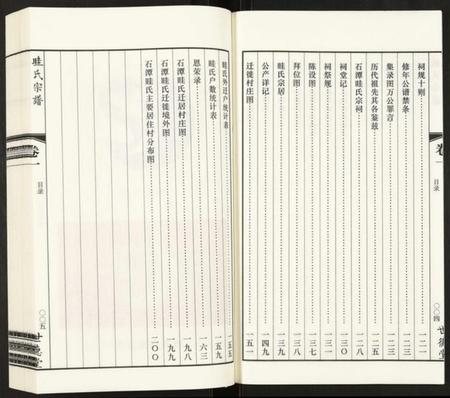 祠规十则 一二一
修年公谱禁条 一二三
集录图万公罪言 一二三
历代祖先其各鉴兹 一二五
石潭眭氏宗祠 一二八
祠堂记 一三〇
祠祭规 一三六
陈设图 一三七
拜位图 一三八
眭氏宗居 一三九
公产详记 一四九
迁徙村庄图 一五一
目录
〇〇四
世德堂
眭氏宗谱
卷一
目录
眭氏外迁户统计表 一五五
眭氏户数统计表 一五九
恩荣录 一六三
石潭眭氏迁居村庄图 一九八
石潭眭氏迁徙境外图 一九九
石潭眭氏主要居住村分布图 二〇〇
〇〇五